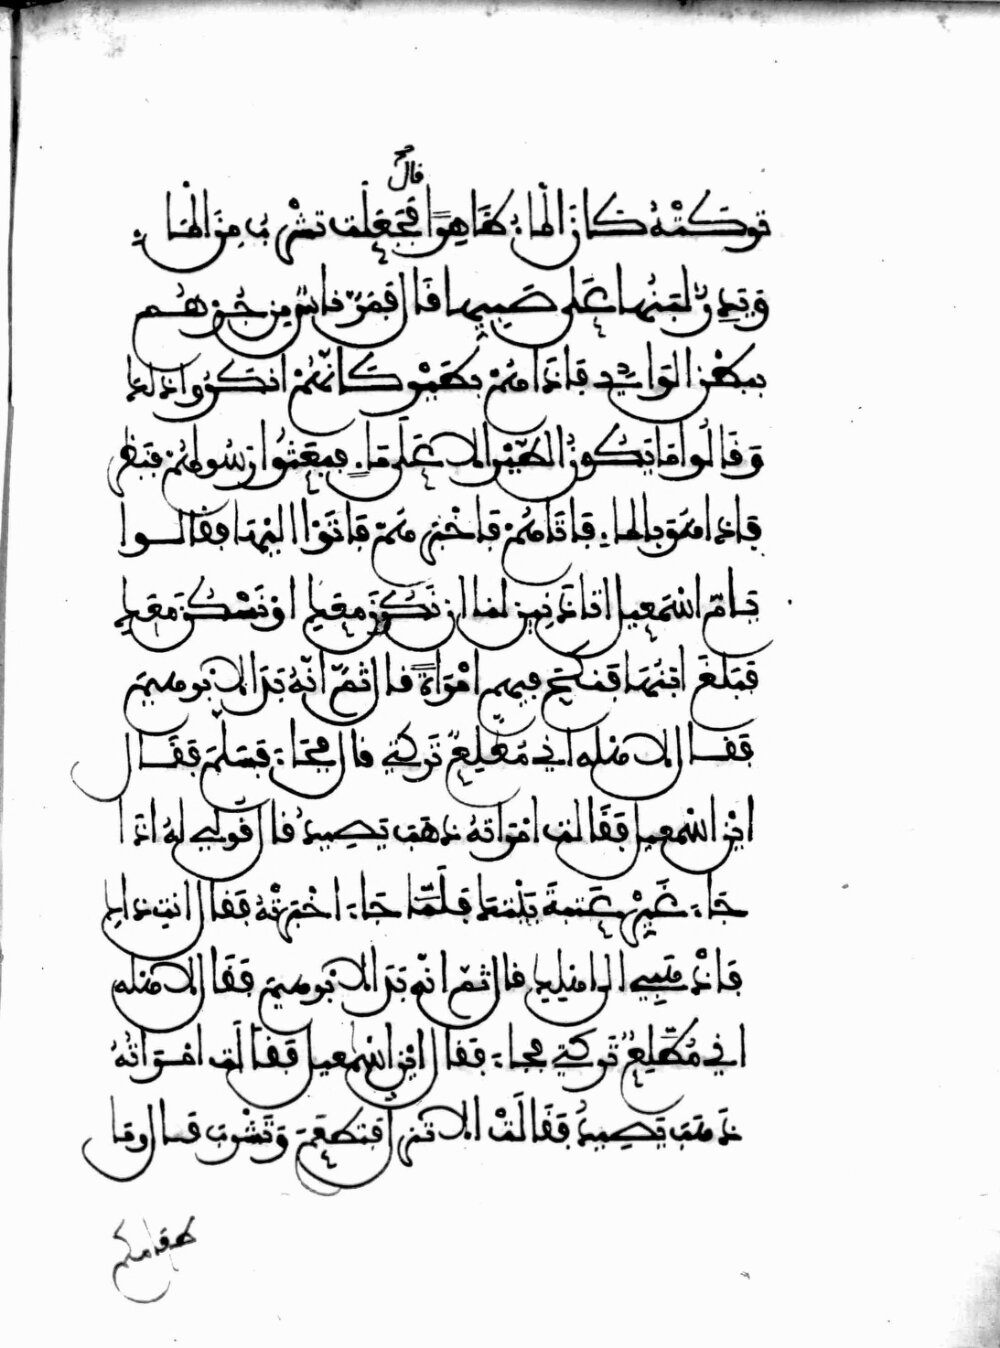 قال
تركته كان الماء ظاهرا فجعلت تشرب من الماء
ويدر لبنها على صبيها قال فمر ناس من جرهم
ببطن الوادي فإذا هم بطير كأنهم أنكروا ذلك
وقالوا ما يكون الطير إلا على ماء فبعثوا رسولهم فنظر
فإذا هو بالماء فأتاهم فأخبرهم فأتوا إليها فقالوا
يا أم اسمعيل أتأذنين لنا أن نكون معك أو نسكن معك
فبلغ ابنها فنكح فيهم امرأة قال ثم إنه بدا لإبرهيم
فقال لأهله إني مطلع تركتي قال فجاء فسلم فقال
أين اسمعيل فقالت امرأته ذهب يصيد قال قولي له إذا
جاء غير عتبة بيتك فلما جاء أخبرته فقال أنت ذاك
فاذهبي إلى أهلك قال ثم إنه بدا لإبرهيم فقال لأهله
إني مطلع تركتي فجاء فقال أين اسمعيل فقالت امرأته
ذهب يصيد فقالت ألا تنزل فتطعم وتشرب قال وما
طعامكم